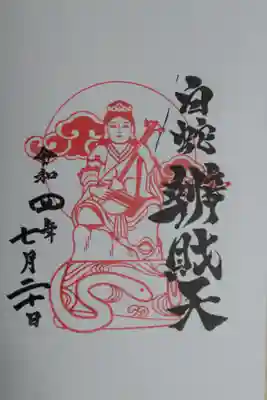 白蛇辨財天
令和四年
七月二十日